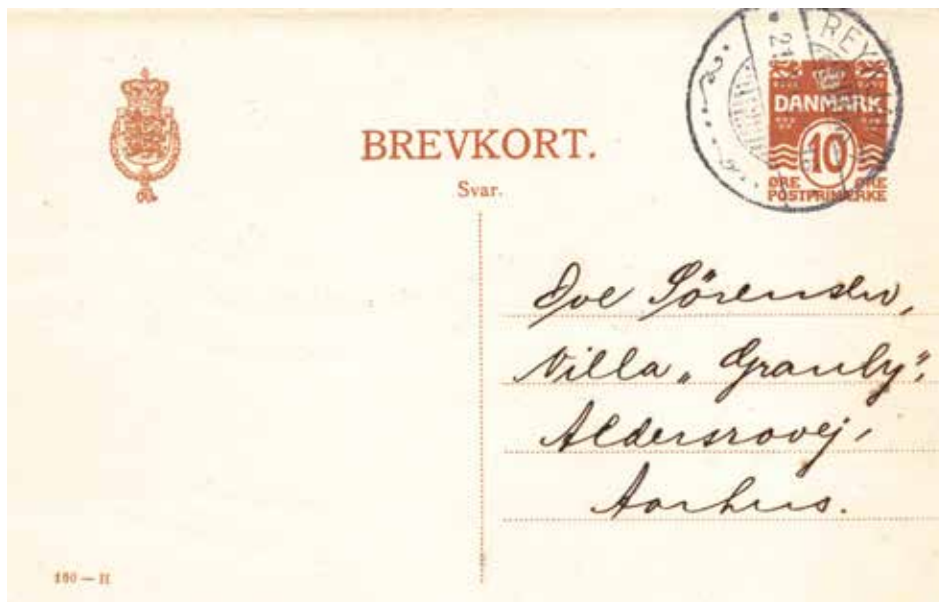 BREVKORT.
Svar.
REY
21.
DANMARK
10
ØRE ØRE
POSTFRIMÆRKE
Ove Sörensen,
Villa „Granly",
Aldersrovej,
Aarhus.
180 — H